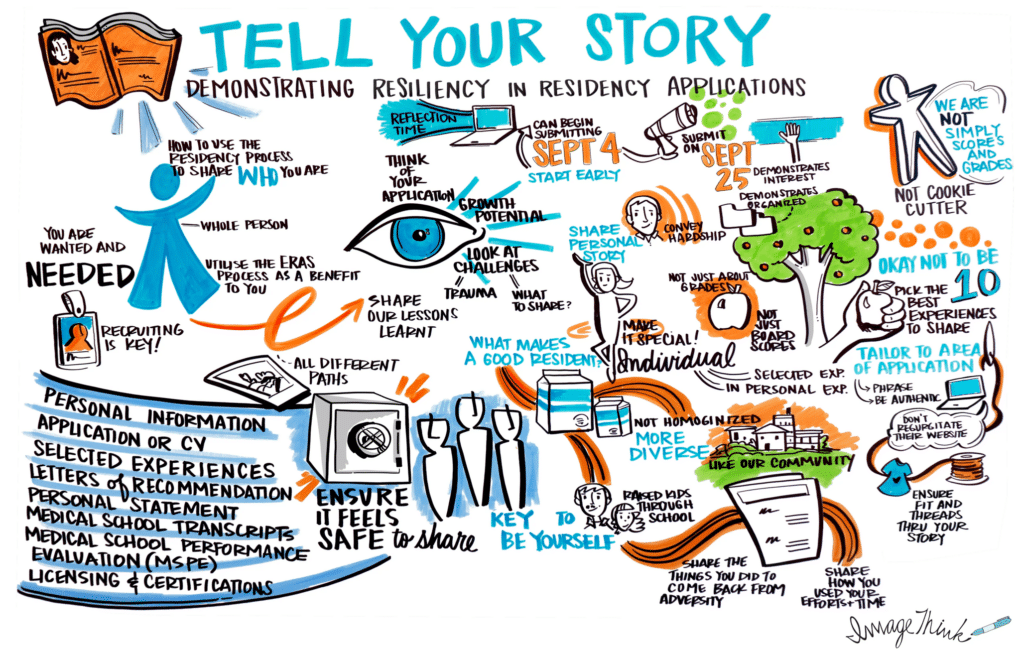 TELL YOUR STORY
DEMONSTRATING RESILIENCY IN RESIDENCY APPLICATIONS
HOW TO USE THE
RESIDENCY PROCESS
TO SHARE WHO YOU ARE
WHOLE PERSON
YOU ARE
WANTED AND
NEEDED
UTILISE THE ERAS
PROCESS AS A BENEFIT
TO YOU
RECRUITING
IS KEY!
SHARE
OUR LESSONS
LEARNT
ALL DIFFERENT
PATHS
REFLECTION
TIME
CAN BEGIN
SUBMITTING
SEPT 4
START EARLY
SUBMIT
ON SEPT
25
DEMONSTRATES
INTEREST
DEMONSTRATES
ORGANIZED
WE ARE
NOT
SIMPLY
SCORES
AND
GRADES
NOT COOKIE
CUTTER
THINK
OF
YOUR
APPLICATION
GROWTH
POTENTIAL
LOOK AT
CHALLENGES
TRAUMA
WHAT
TO SHARE?
SHARE
PERSONAL
STORY
CONVEY
HARDSHIP
NOT JUST ABOUT
GRADES
NOT
JUST
BOARD
SCORES
MAKE
IT SPECIAL!
Individual
SELECTED EXP.
IN PERSONAL EXP.
OKAY NOT TO BE
10
PICK THE
BEST
EXPERIENCES
TO SHARE
TAILOR TO AREA
OF APPLICATION
PHRASE
BE AUTHENTIC
DON'T
REGURGITATE
THEIR WEBSITE
ENSURE
FIT AND
THREADS
THRU YOUR
STORY
WHAT MAKES
A GOOD RESIDENT?
NOT HOMOGINIZED
MORE
DIVERSE
LIKE OUR COMMUNITY
PERSONAL INFORMATION
APPLICATION OR CV
SELECTED EXPERIENCES
LETTERS of RECOMMENDATION
PERSONAL STATEMENT
MEDICAL SCHOOL TRANSCRIPTS
MEDICAL SCHOOL PERFORMANCE
EVALUATION (MSPE)
LICENSING & CERTIFICATIONS
ENSURE
IT FEELS
SAFE to share
KEY TO
BE YOURSELF
RAISED KIDS
THROUGH
SCHOOL
SHARE THE
THINGS YOU DID TO
COME BACK FROM
ADVERSITY
SHARE
HOW YOU
USED YOUR
EFFORTS + TIME
ImageThink